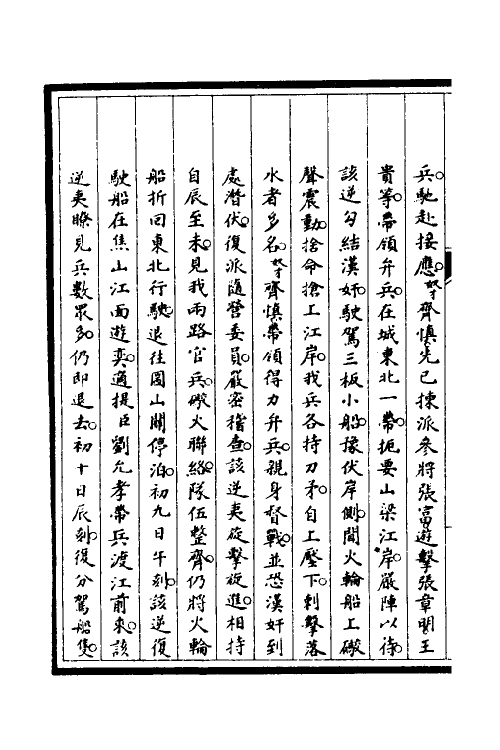 兵。馳赴接應。奴才齊慎先已揀派參將張富遊擊張章明王
貴等。帶領弁兵在城東北一帶。扼要山梁江岸。嚴陣以待。
該逆勾結漢奸。駛駕三板小船。豫伏岸側。聞火輪船上礮
聲震動。捨命搶上江岸。我兵各持刀矛。自上壓下。刺擊落
水者多名。奴才齊慎帶領得力弁兵。親身督戰。並恐漢奸到
處潛伏。復派隨營委員。嚴密稽查。該逆夷旋擊旋進。相持
自辰至未。見我兩路官兵。礮火聯絡。隊伍整齊。仍將火輪
船折回東北行駛。退往圌山關停泊。初九日午刻。該逆復
駛船在焦山江面遊奕。適提臣劉允孝帶兵渡江前來。該
逆夷瞭見兵數眾多。仍即退去。初十日辰刻。復分駕船隻。